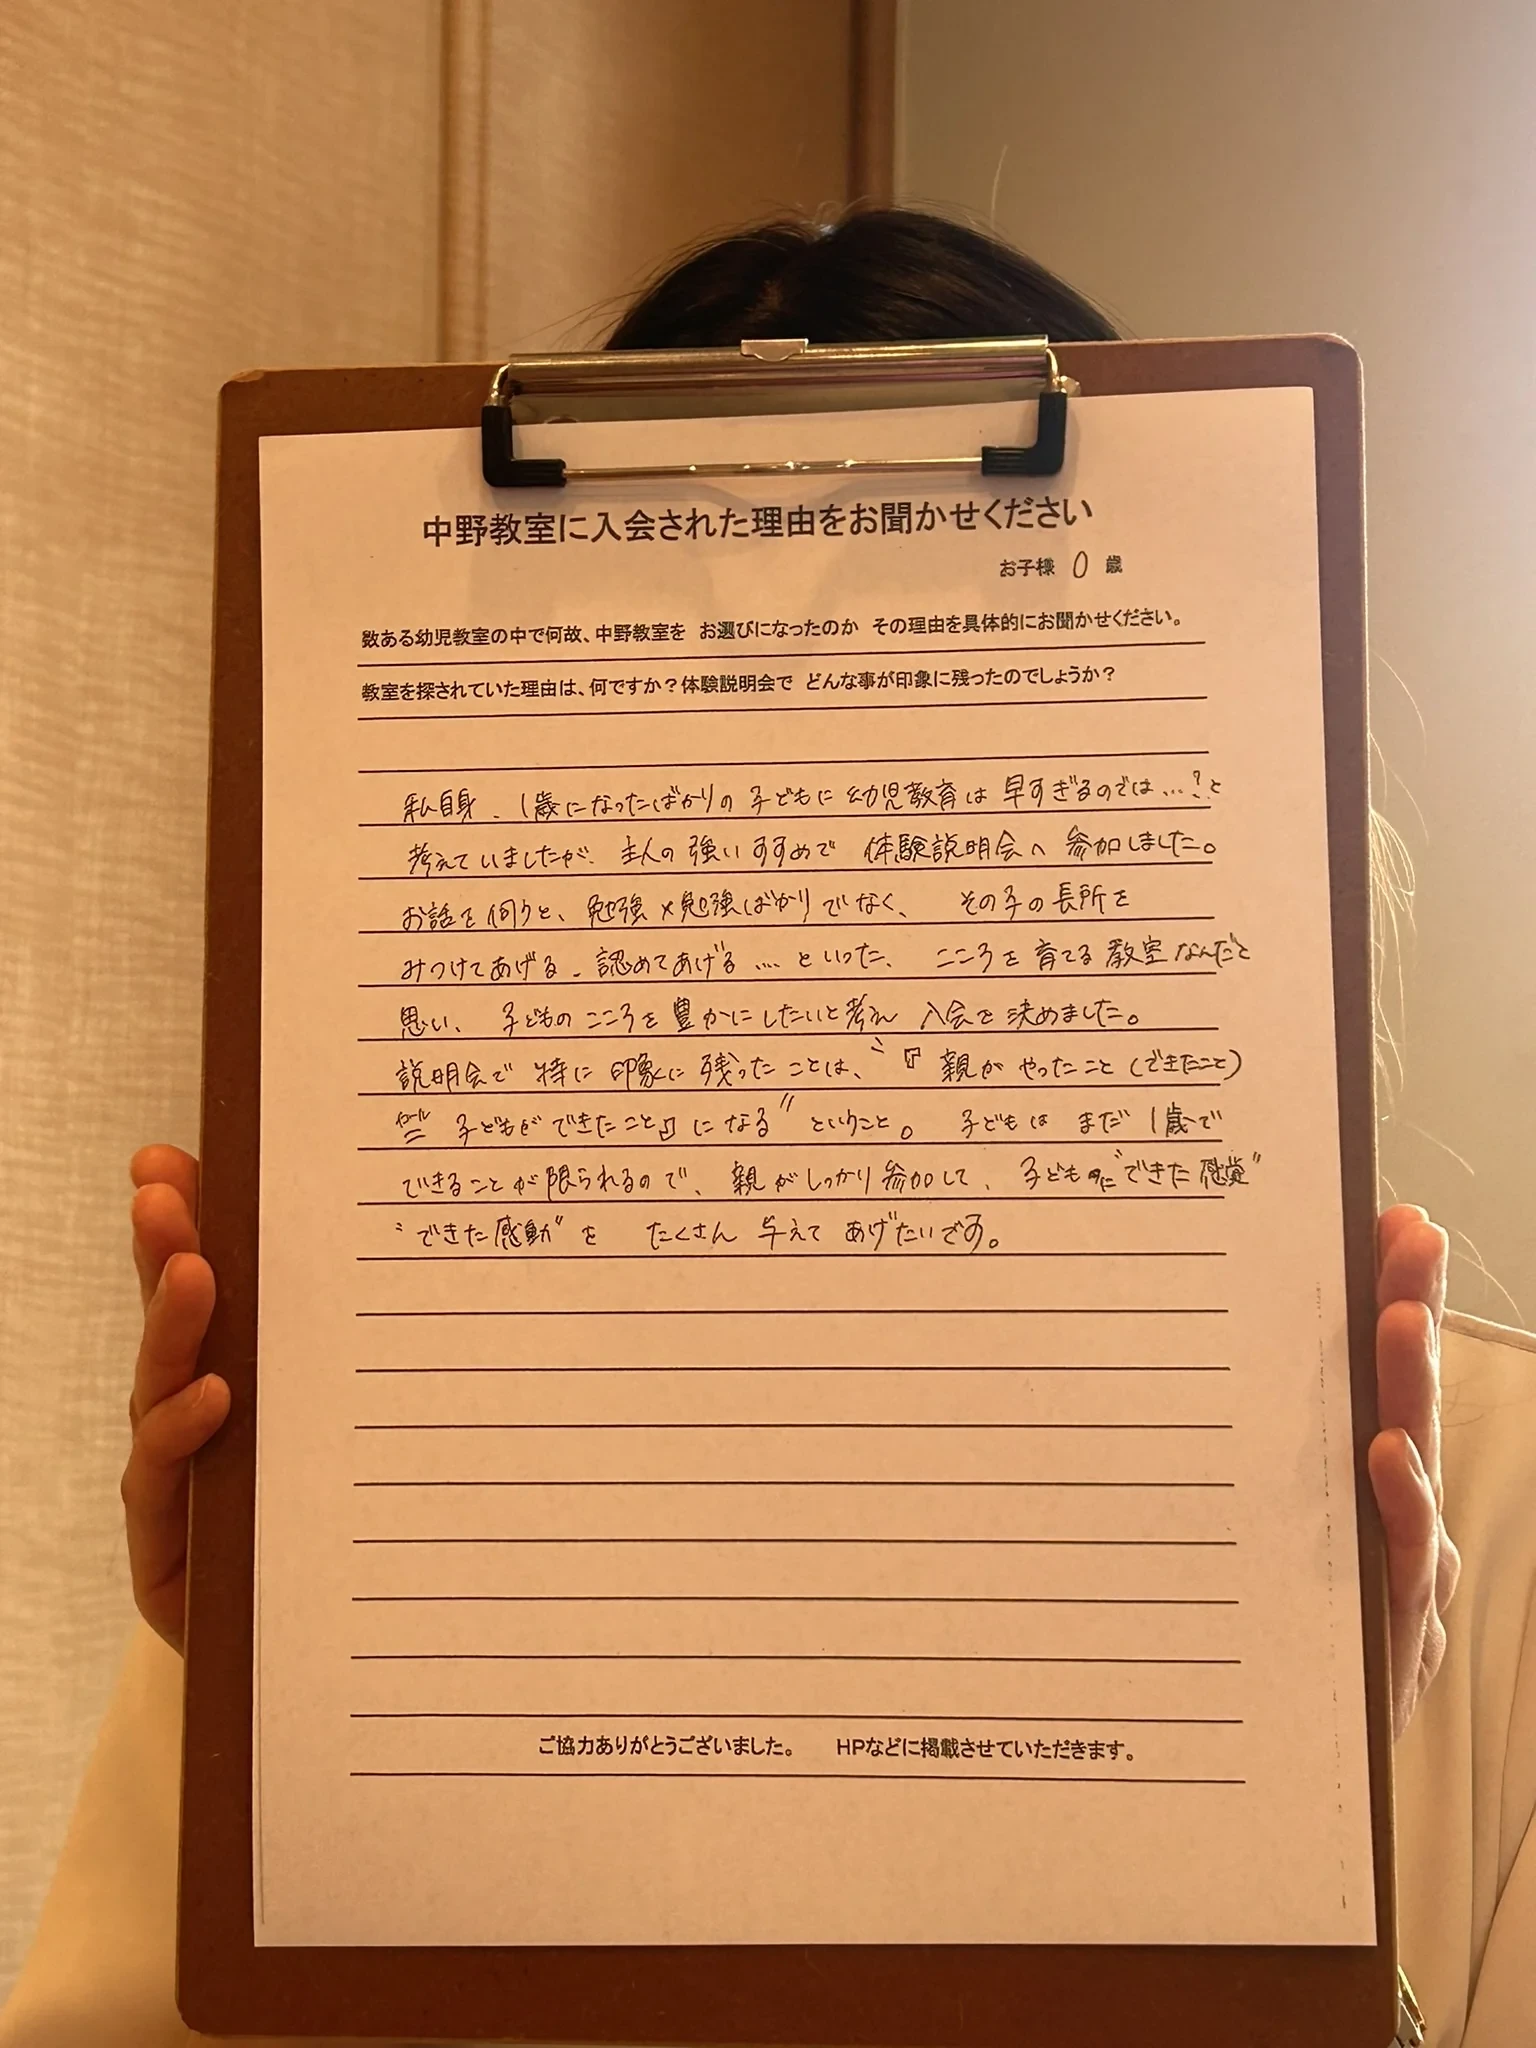 中野教室に入会された理由をお聞かせください
お子様 0 歳
数ある幼児教室の中で何故、中野教室を お選びになったのか その理由を具体的にお聞かせください。
教室を探されていた理由は、何ですか？体験説明会で どんな事が印象に残ったのでしょうか？
私自身、1歳になったばかりの子どもに幼児教育は早すぎるのでは…？と
考えていましたが、主人の強いすすめで 体験説明会へ 参加しました。
お話を伺うと、勉強×勉強ばかりでなく、 その子の長所を
みつけてあげる、認めてあげる…. といった、 こころを育てる教室なんだと
思い、 子どものこころを豊かにしたいと考え 入会を決めました。
説明会で特に印象に残ったことは、〝『親がやったこと（できたこと）
イコール = 子どもができたこと』になる〟ということ。 子どもはまだ1歳で
できることが限られるので、親がしっかり参加して、子どもに〝できた感覚〟
〝できた感動〟を たくさん与えてあげたいです。
ご協力ありがとうございました。 HPなどに掲載させていただきます。